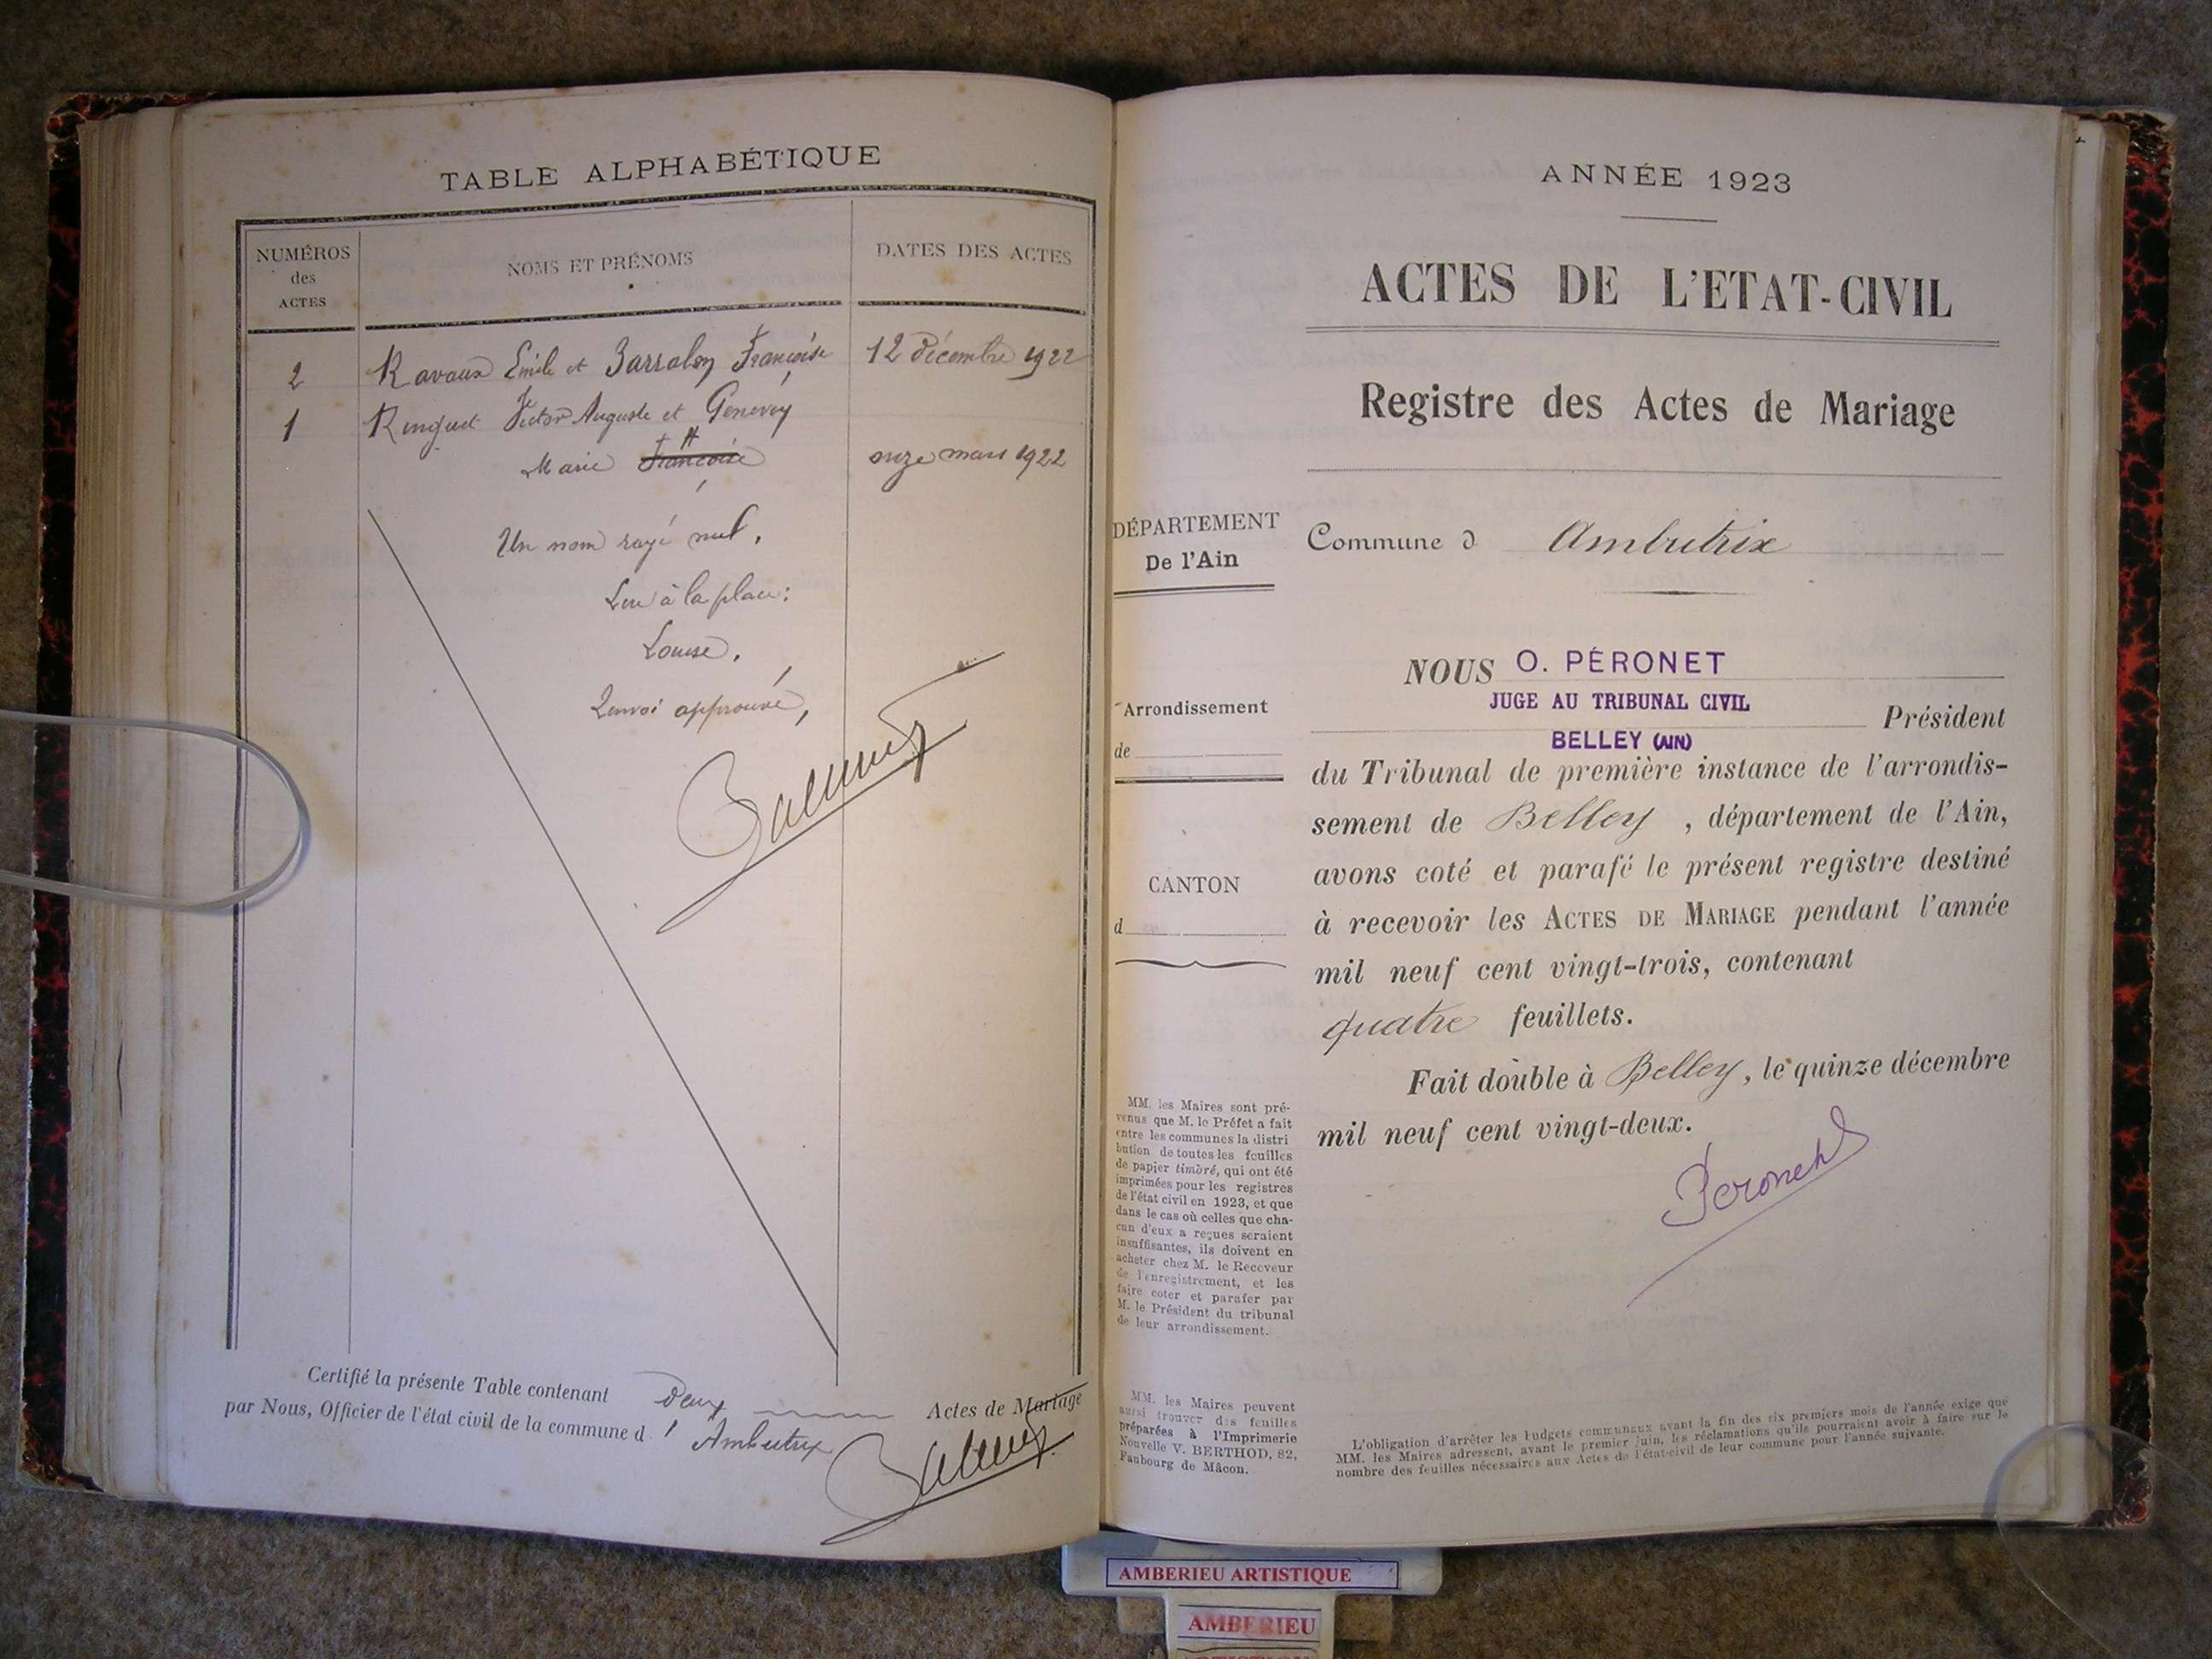 TABLE ALPHABÉTIQUE
NUMÉROS
des
ACTES
NOMS ET PRÉNOMS
DATES DES ACTES
2 Ravaux Emile et Barralon Françoise 12 décembre 1922
1 Ringuet Victor Auguste et Genevey
Marie Françoise onze mars 1922
Un nom rayé nul.
Lire à la place:
Louise.
Renvoi approuvé,
Certifié la présente Table contenant Deux Actes de Mariage
par Nous, Officier de l'état civil de la commune d'Ambutrix
ANNÉE 1923
ACTES DE L'ETAT-CIVIL
Registre des Actes de Mariage
DÉPARTEMENT
De l'Ain
Commune d Ambutrix
Arrondissement
de
CANTON
d
NOUS O. PÉRONET
JUGE AU TRIBUNAL CIVIL
Président
BELLEY (AIN)
du Tribunal de première instance de l'arrondis-
sement de Belley , département de l'Ain,
avons coté et parafé le présent registre destiné
à recevoir les ACTES DE MARIAGE pendant l'année
mil neuf cent vingt-trois, contenant
quatre feuillets.
Fait double à Belley, le quinze décembre
mil neuf cent vingt-deux.
Péronet
MM. les Maires sont pré-
venus que M. le Préfet a fait
entre les communes la distri
bution de toutes les feuilles
de papier timbré, qui ont été
imprimées pour les registres
de l'état civil en 1923, et que
dans le cas où celles que cha-
cun d'eux a reçues seraient
insuffisantes, ils doivent en
acheter chez M. le Receveur
de l'enregistrement, et les
faire coter et parafer par
M. le Président du tribunal
de leur arrondissement.
MM. les Maires peuvent
aussi trouver des feuilles
préparées à l'Imprimerie
Nouvelle V. BERTHOD, 82,
Faubourg de Mâcon.
L'obligation d'arrêter les budgets communaux avant la fin des six premiers mois de l'année exige que
MM. les Maires adressent, avant le premier juin, les réclamations qu'ils pourraient avoir à faire sur le
nombre des feuilles nécessaires aux Actes de l'état-civil de leur commune pour l'année suivante.
AMBERIEU ARTISTIQUE
AMBERIEU
ARTISTIQUE